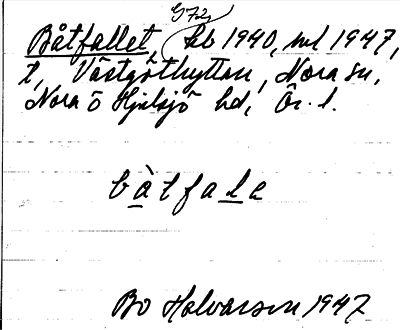 G72
Båtfallet, kb 1940, ml 1947,
t, Västgöthyttan, Nora sn,
Nora o Hjulsjö hd, Ör. l.
bàtfale
Bo Halvarson 1947